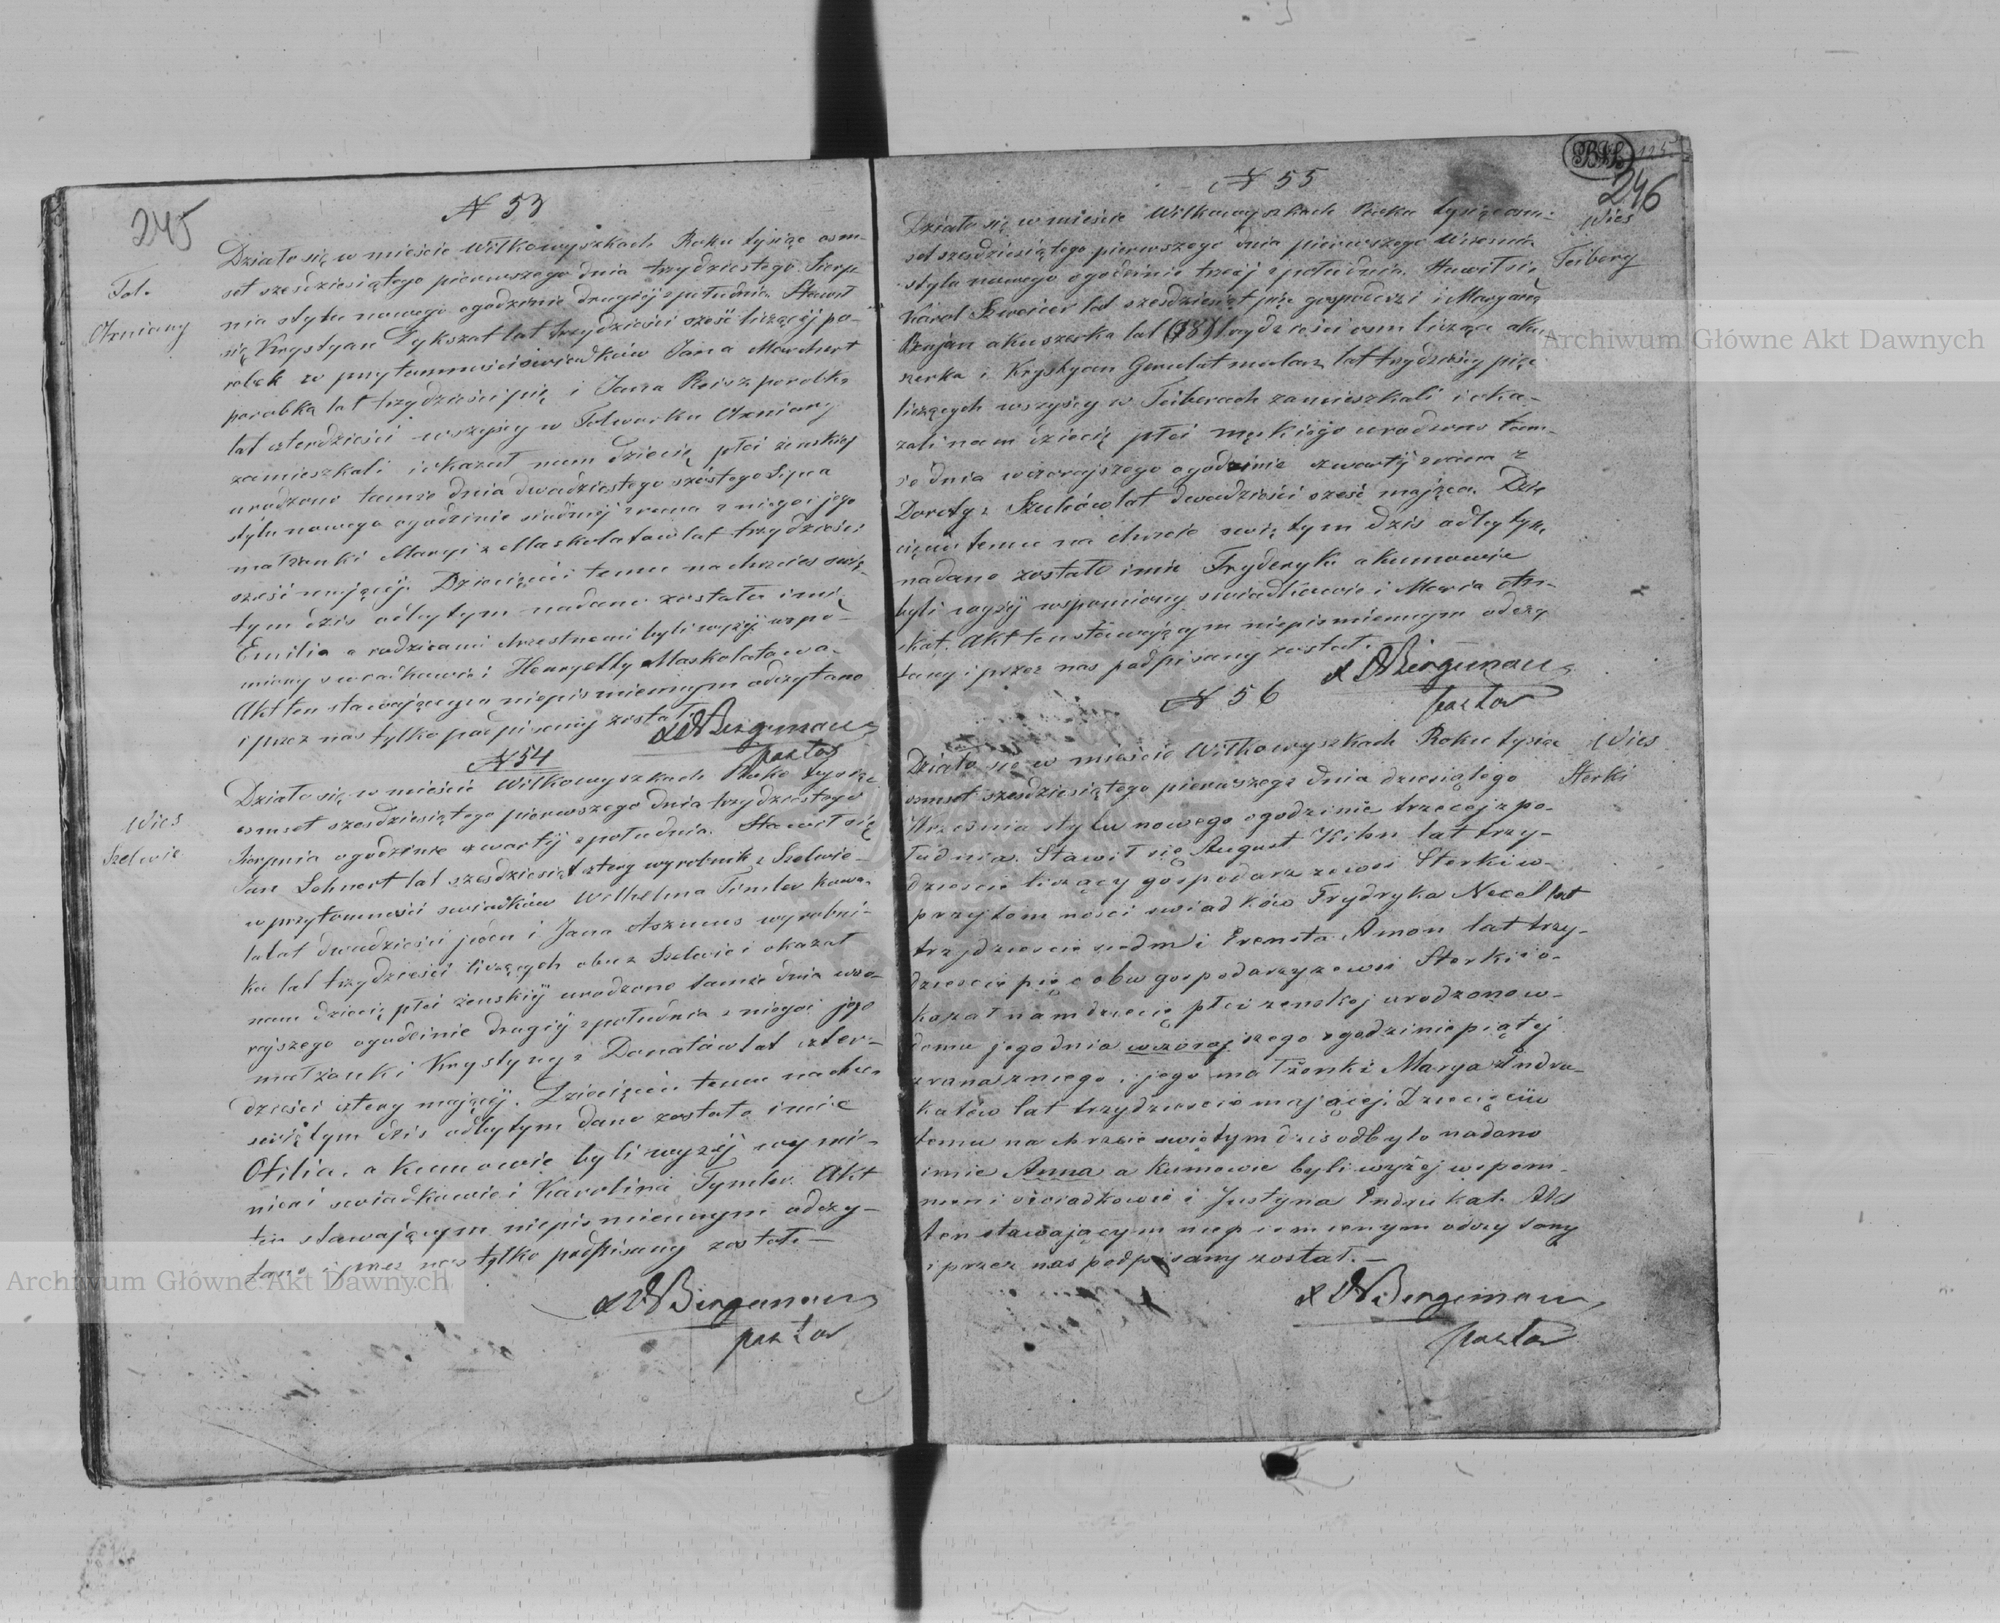 245
N 53
Fol.
Ożniany
Działo się w mieście Wiłkowyszkach Roku tysiąc osm-
set sześdziesiątego pierwszego dnia trzydziestego Sierp-
nia stylu nowego ogodzinie drugiéj zpołudnia. Stawił
się Krystyan Dykszat lat trzydzieści sześć liczący pa-
robek w przytomności świadków Jana Marchert
parobka lat trzydzieści pię i Jana Reisz parobka
lat czterdzieści wszyscy w Folwarku Ożniany
zamieszkali i okazał nam dziecię płci żenskiéj
urodzone tamże dnia dwadziestego szóstego Lipca
stylu nowego ogodzinie siódméj zrana z niego i jego
małżonki Maryi z Maskolatow lat trzydzieści
sześć mającéj. Dziecięciu temu na chrzcie świę-
tym dziś odbytym nadano zostało imię
Emilia a rodzicami chrzestnemi byli wyżéj wspo-
miony swiadkowie i Henryetty Maskolatowa.
Akt ten stawającym niepismiennym odczytano
i przez nas tylko podpisany został.
Bergemann
pastor
N 54
Wies
Szelwie
Działo się w mieście Wiłkowyszkach Roku tysiąc
osmset szesdziesiątego pierwszego dnia trzydziestego
Sierpnia ogodzinie czwartéj zpołudnia. Stawił się
Jan Lehnert lat szesdziesiąt cztery wyrobnik z Szelwie-
w przytomności świadków Wilhelma Timler kowa-
la lat dwadzieści jeden i Jana Aszmus wyrobni-
ka lat trzydzieści liczących obu z Szelwie i okazał
nam dziecię płci żenskiéj urodzone tamże dnia wczo-
rajszego ogodzinie drugiéj zpołudnia z niego i jego
małżonki Krystyny z Donatów lat czter-
dzieści cztery mającéj. Dziecięciu temu na chrz.
świętym dziś odbytym dano zostało imie
Otilia, a kumowie byli wyżéj wymi-
nieni swiadkowie i Karolina Tymler. Akt
ten stawającym niepismiennym odczy-
tano i przez nas tylko podpisany został.
Bergemann
pastor
125.
246
N 55
Wies
Teibery
Działo się w mieście Wiłkowyszkach Roku tysiąc osm-
set szesdziesiątego pierwszego dnia pierwszego Wrzesnia
stylu nowego ogodzinie trzeéj zpołudnia. Stawił się
Karol Szweicer lat szesdziesiąt pięc gospodarz i Maryana
akuszerka lat (38) trzydzieści osm licząca aku-
szerka i Krystyan Gwulat mularz lat trzydziesci pięc
liczących wszyscy w Teiberach zamieszkali i oka-
zali nam dziecię płci męskiego urodzono tam-
że dnia wczorajszego ogodzinie czwartéj zrana z
Doroty z Szuhów lat dwadzieści sześć mająca. Dzie
cięciu temu na chrzcie świętym dzis odbytym
nadano zostało imie Fryderyk a kumowie
byli wyżéj wspomiony swiadkowie i Maria
Akt ten stawającym niepismiennym odczy
tany i przez nas podpisany został.
Bergemann
pastor
N 56
Wies
Sterki
Działo się w mieście Wiłkowyszkach Roku tysiąc
osmset szesdziesiątego pierwszego dnia dziesiątego
Wrzesnia stylu nowego ogodzinie trzeciej zpo-
łudnia. Stawił się August Kihn lat trzy-
dziescie liczący gospodarz zewsi Sterki w-
przytomności swiadków Frydryka Necel lat
trzydziescie siedm i Ernsta Amon lat trzy-
dziescie pięc obu gospodarzy zewsi Sterki i o-
kazał nam dziecię płci zenskej urodzono w-
domu jego dnia wczorajszego ogodzinie piątej
zrana z niego i jego małżonki Marya z Endru-
katów lat trzydziescie mającej. Dziecięciu
temu na chrzcie swiętym dzis odbyto nadano
imie Anna a kumowie byli wyżej wspom-
nieni swiadkowie i Justyna Endrukat. Akt
ten stawającym niepismienym odczytany
i przez nas podpisany został. —
Bergemann
pastor
Archiwum Główne Akt Dawnych
Archiwum Główne Akt Dawnych